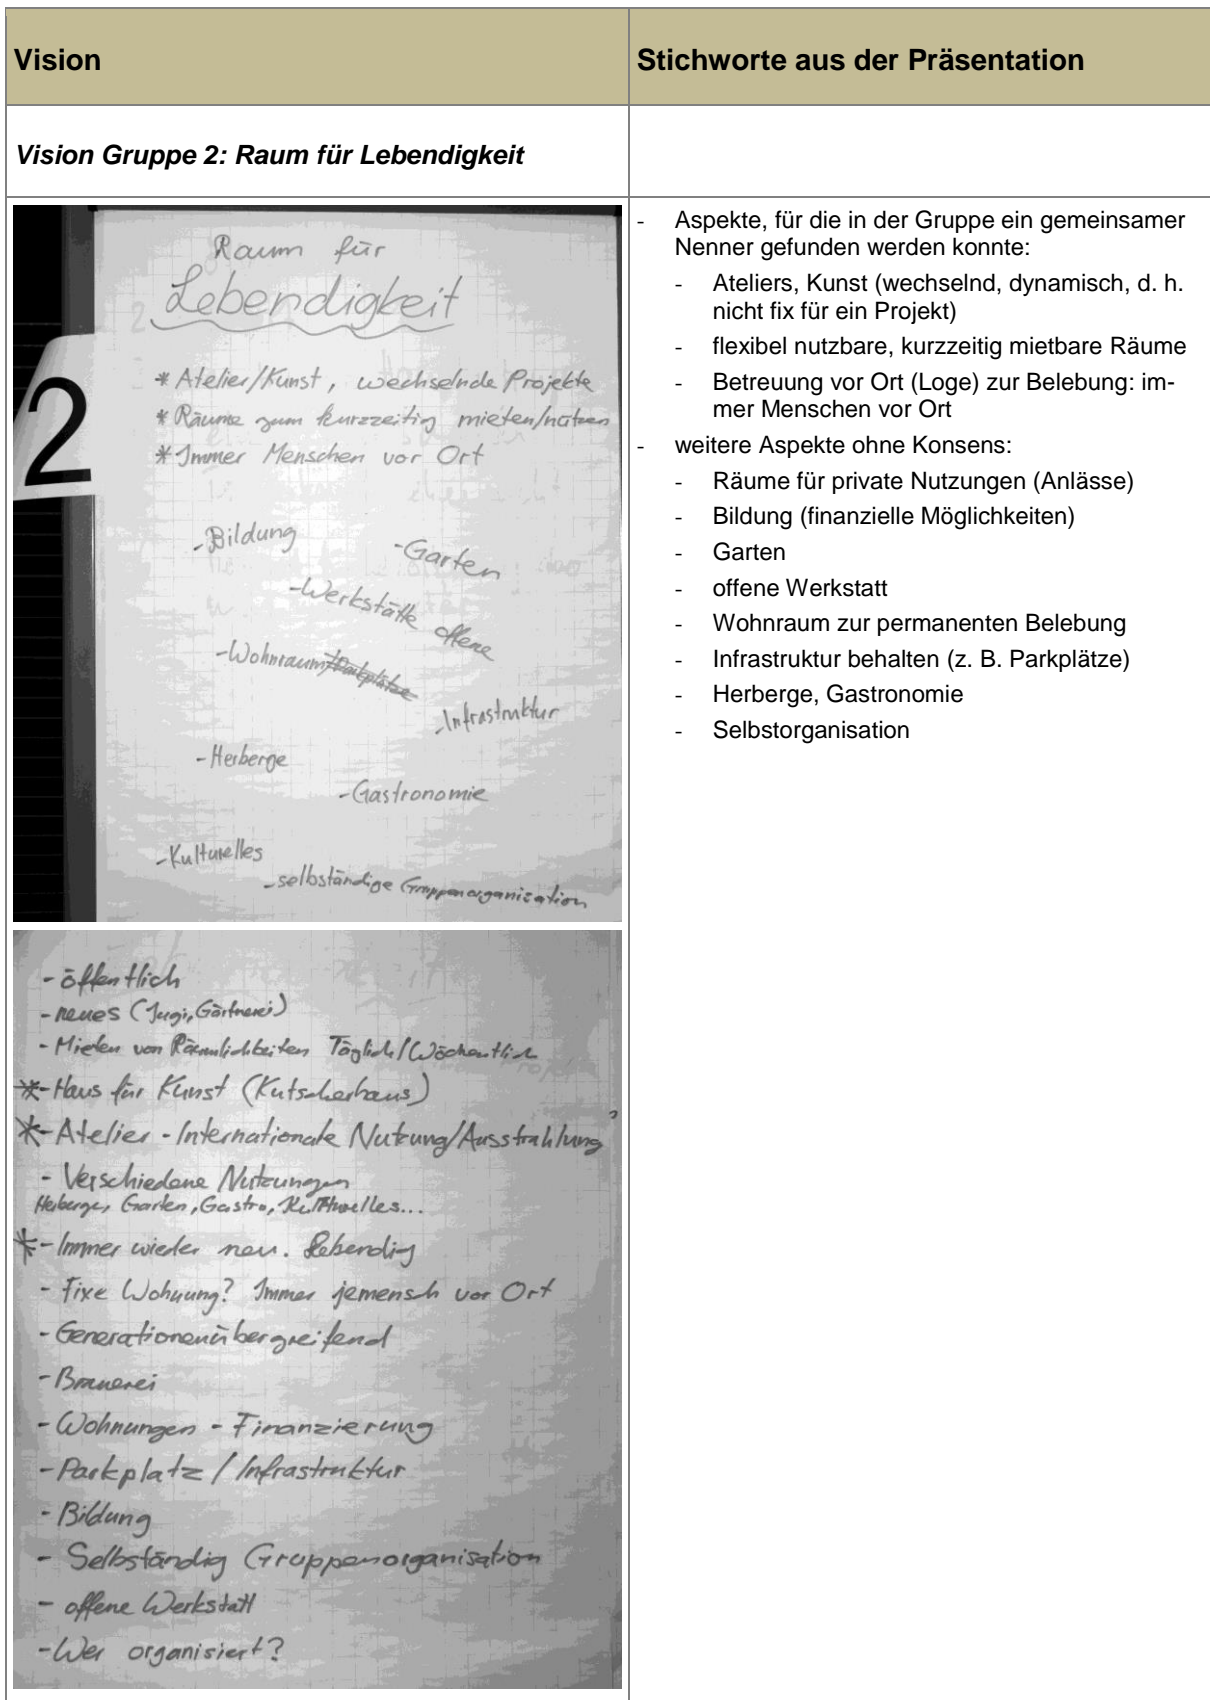 Vision
Stichworte aus der Präsentation
Vision Gruppe 2: Raum für Lebendigkeit
Raum für
Lebendigkeit
2
* Atelier/Kunst, wechselnde Projekte
* Räume zum kurzzeitig mieten/nutzen
* Immer Menschen vor Ort
- Bildung
- Garten
- Werkstätte offene
- Wohnraum/Parkplätze
- Infrastruktur
- Herberge
- Gastronomie
- Kulturelles
- selbständige Gruppenorganisation
- öffentlich
- neues (Jugi, Gärtnerei)
- Mieten von Räumlichkeiten Täglich/Wöchentlich
*- Haus für Kunst (Kutscherhaus)
*- Atelier - Internationale Nutzung/Ausstrahlung
- Verschiedene Nutzungen
Herberge, Garten, Gastro, Kulturelles...
*- Immer wieder neu. Lebendig
- Fixe Wohnung? Immer jemensch vor Ort
- Generationenübergreifend
- Brauerei
- Wohnungen - Finanzierung
- Parkplatz / Infrastruktur
- Bildung
- Selbständig Gruppenorganisation
- offene Werkstatt
- Wer organisiert?
- Aspekte, für die in der Gruppe ein gemeinsamer
Nenner gefunden werden konnte:
- Ateliers, Kunst (wechselnd, dynamisch, d. h.
nicht fix für ein Projekt)
- flexibel nutzbare, kurzzeitig mietbare Räume
- Betreuung vor Ort (Loge) zur Belebung: im-
mer Menschen vor Ort
- weitere Aspekte ohne Konsens:
- Räume für private Nutzungen (Anlässe)
- Bildung (finanzielle Möglichkeiten)
- Garten
- offene Werkstatt
- Wohnraum zur permanenten Belebung
- Infrastruktur behalten (z. B. Parkplätze)
- Herberge, Gastronomie
- Selbstorganisation